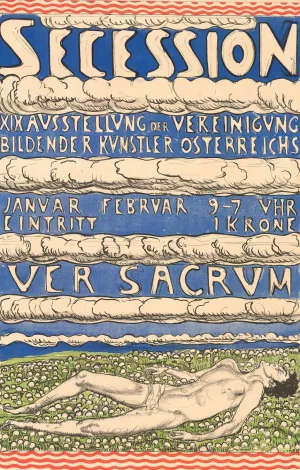 SECESSION
XIX AUSSTELLUNG DER VEREINIGUNG
BILDENDER KVNSTLER ÖSTERREICHS
JANVAR FEBRVAR 9-7 VHR
EINTRITT 1 KRONE
VER SACRVM